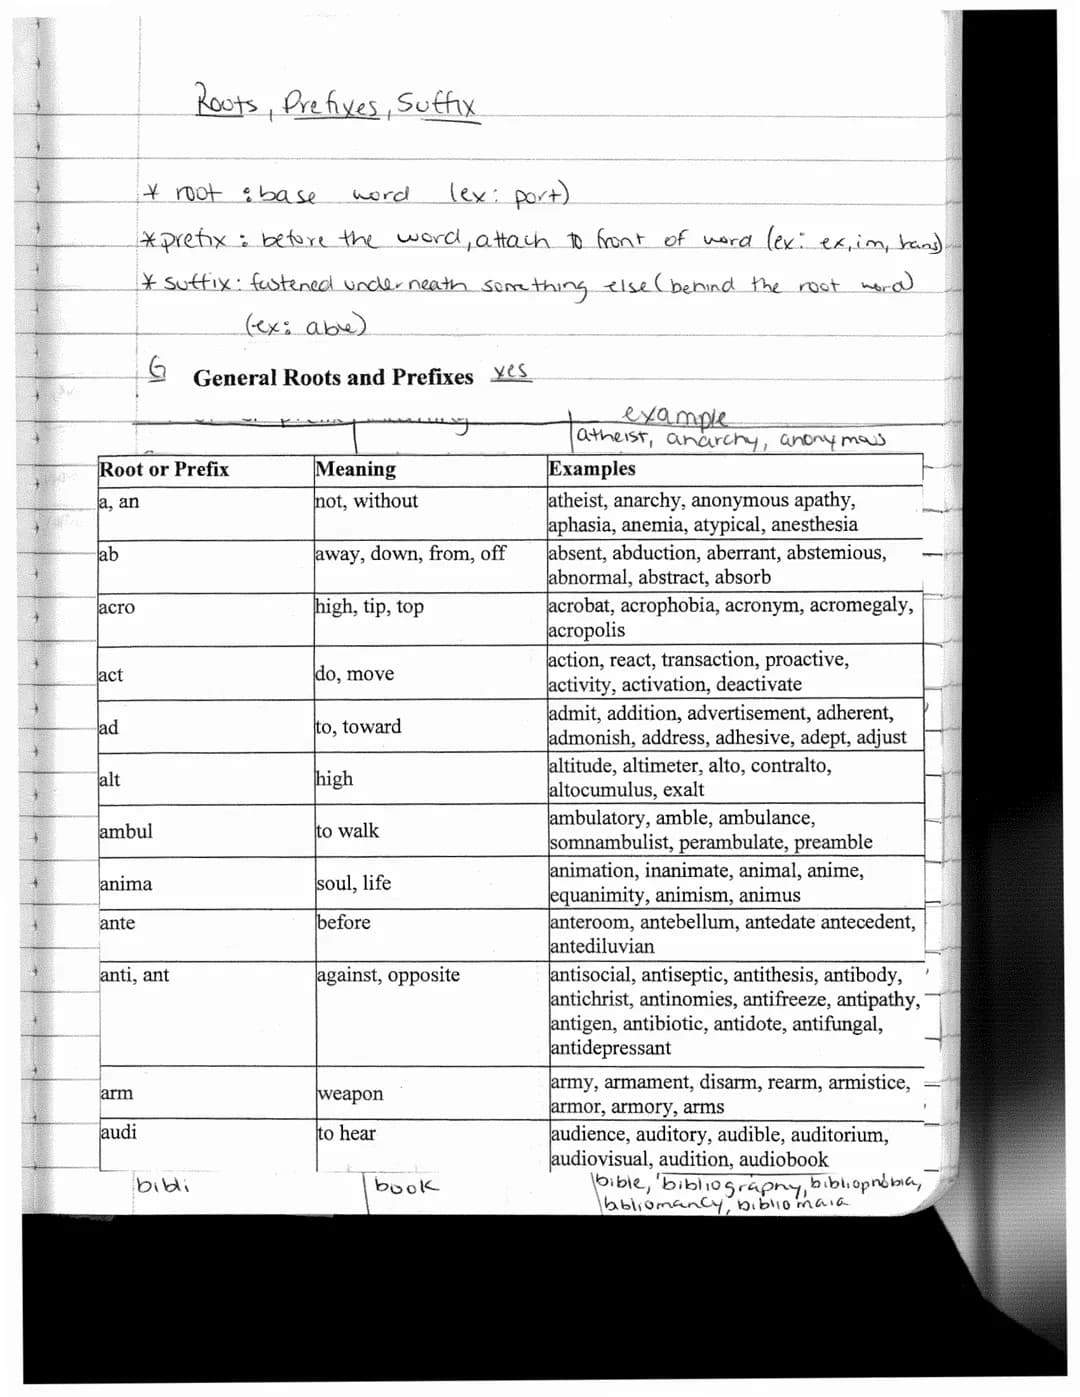 Roots, Prefixes, Suffix
* root : base word (ex: port)
* prefix : before the word, attach to front of word (ex: ex, im, trans)
* suffix: fastened underneath something else (behind the root word)
(ex: able)
G General Roots and Prefixes yes
example
atheist, anarchy, anonymous
Root or Prefix Meaning Examples
a, an not, without atheist, anarchy, anonymous apathy,
aphasia, anemia, atypical, anesthesia
ab away, down, from, off absent, abduction, aberrant, abstemious,
abnormal, abstract, absorb
acro high, tip, top acrobat, acrophobia, acronym, acromegaly,
acropolis
act do, move action, react, transaction, proactive,
activity, activation, deactivate
ad to, toward admit, addition, advertisement, adherent,
admonish, address, adhesive, adept, adjust
alt high altitude, altimeter, alto, contralto,
altocumulus, exalt
ambul to walk ambulatory, amble, ambulance,
somnambulist, perambulate, preamble
anima soul, life animation, inanimate, animal, anime,
equanimity, animism, animus
ante before anteroom, antebellum, antedate antecedent,
antediluvian
anti, ant against, opposite antisocial, antiseptic, antithesis, antibody,
antichrist, antinomies, antifreeze, antipathy,
antigen, antibiotic, antidote, antifungal,
antidepressant
arm weapon army, armament, disarm, rearm, armistice,
armor, armory, arms
audi to hear audience, auditory, audible, auditorium,
audiovisual, audition, audiobook
bibli book bible, bibliography, bibliophobia,
bibliomancy, bibliomaia